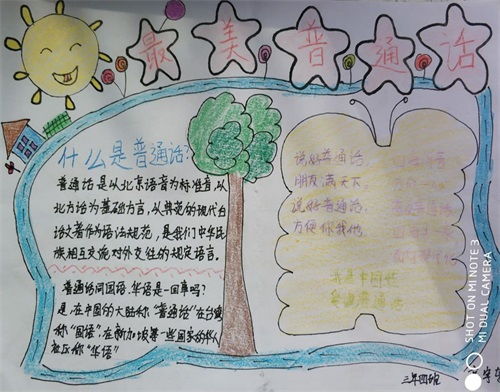 最美普通话
什么是普通话?
普通话是以北京语音为标准音,以
北方话为基础方言,以典范的现代白
话文著作为语法规范,是我们中华民
族相互交流对外交往的规定语言。
普通话同国语、华语是一回事吗?
是,在中国的大陆称"普通话"在台湾
称"国语",在新加坡等一些国家的华人
社区称"华语"
说好普通话,
朋友满天下
说好普通话,
方便你我他。
我是中国娃
爱说普通话
三年四班
SHOT ON MI NOTE 3
MI DUAL CAMERA